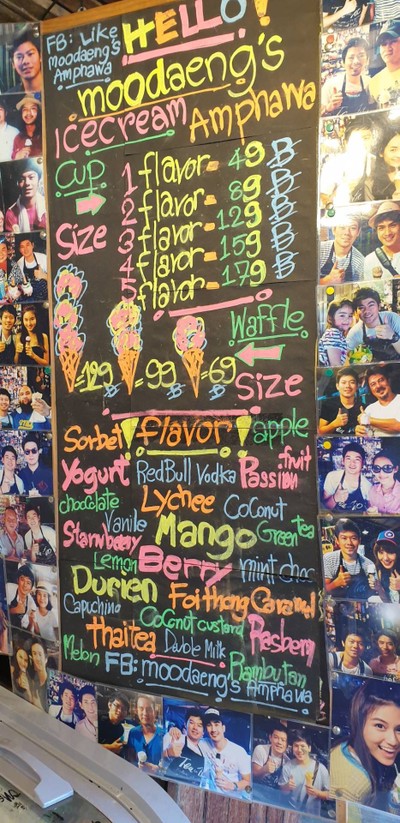 HELLO!
FB: Like
moodaeng's
Amphawa
moodaeng's
Icecream Amphawa
Cup
Size
1 flavor = 49 B
2 flavor = 89 B
3 flavor = 129 B
4 flavor = 159 B
5 flavor = 179 B
Waffle
Size
=129 B =99 B =69 B
Sorbet !flavor! apple
Yogurt RedBull Vodka Passion fruit
chocolate Lychee Coconut
Vanile Green tea
Strawberry Mango
Lemon Berry mint choc
Durien Foi thong Caramel
Capuchino Coconut custard
Thai tea Double Milk Rasberry
Melon FB: moodaeng's Rambutan
Amphawa